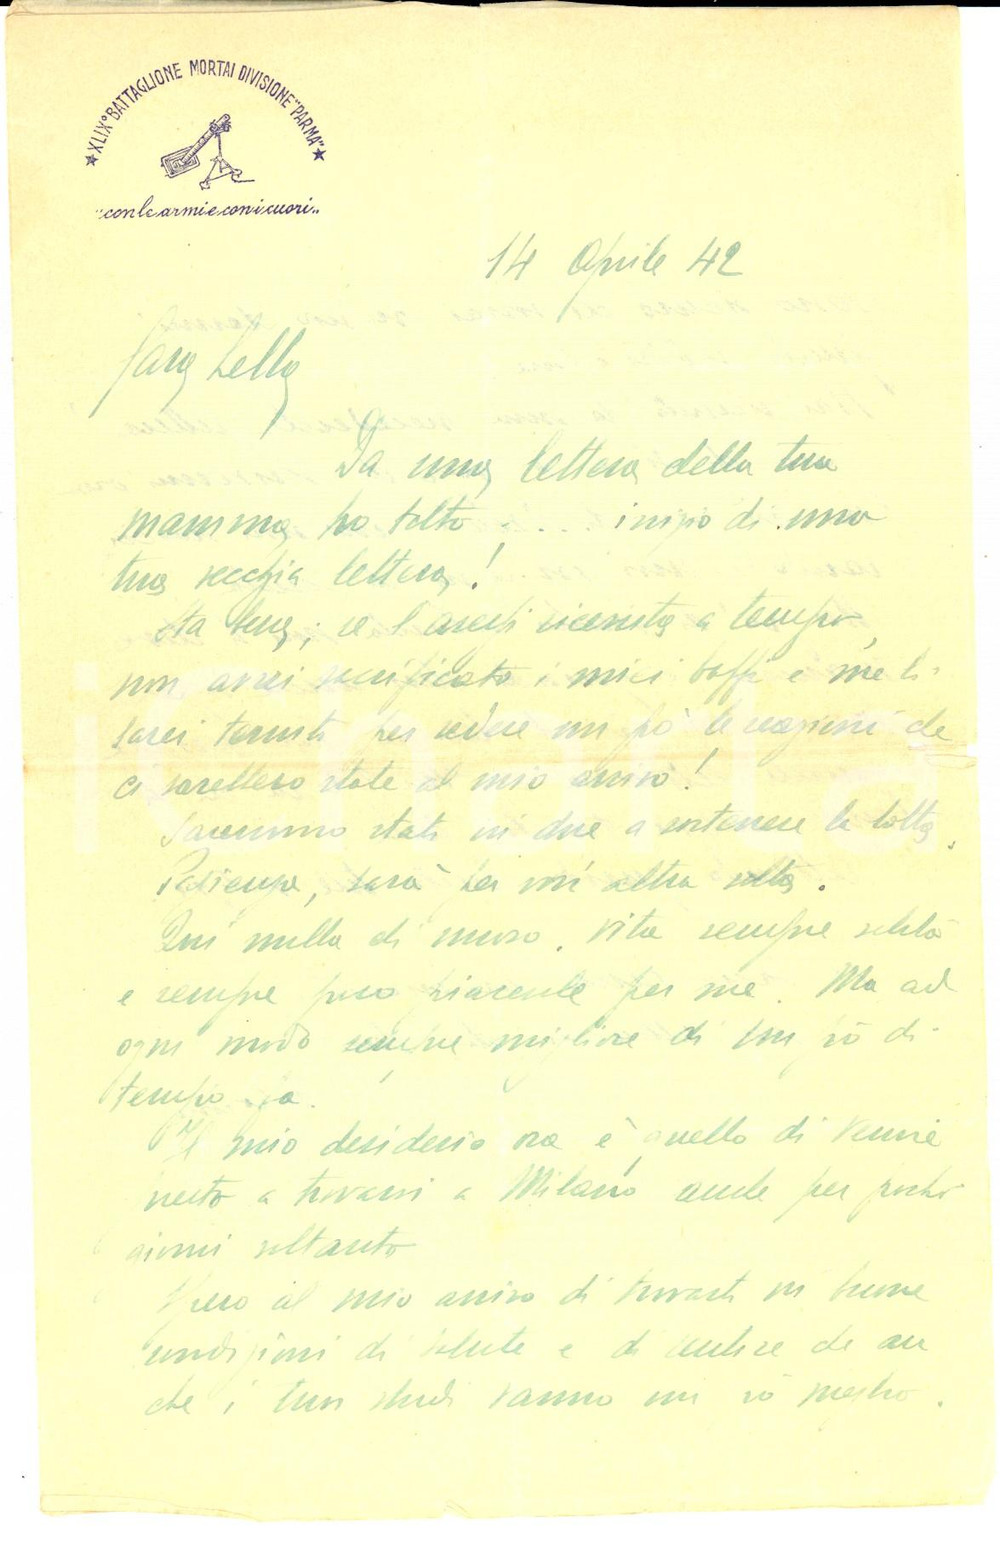 ★ XLIX° BATTAGLIONE MORTAI DIVISIONE "PARMA" ★
"con le armi e con i cuori"
14 Aprile 42
Cara Lella
Da una lettera della tua
mamma ho tolto . . . inizio di una
tua vecchia lettera!
Sta bene; se l'avessi ricevuta a tempo,
non avrei sacrificato i miei baffi e me li
sarei tenuti per vedere un po' le reazioni che
ci sarebbero state al mio arrivo!
Saremmo stati in due a sostenere la lotta.
Pazienza, sarà per un'altra volta.
Qui nulla di nuovo. Vita sempre solita
e sempre poco piacente per me. Ma ad
ogni modo sempre migliore di un pò di
tempo fa.
Il mio desiderio ora è quello di venire
presto a trovarvi a Milano anche per pochi
giorni soltanto
Spero al mio arrivo di trovarti in buone
condizioni di salute e di sentire che an
che i tuoi studi vanno un pò meglio.
iCharta